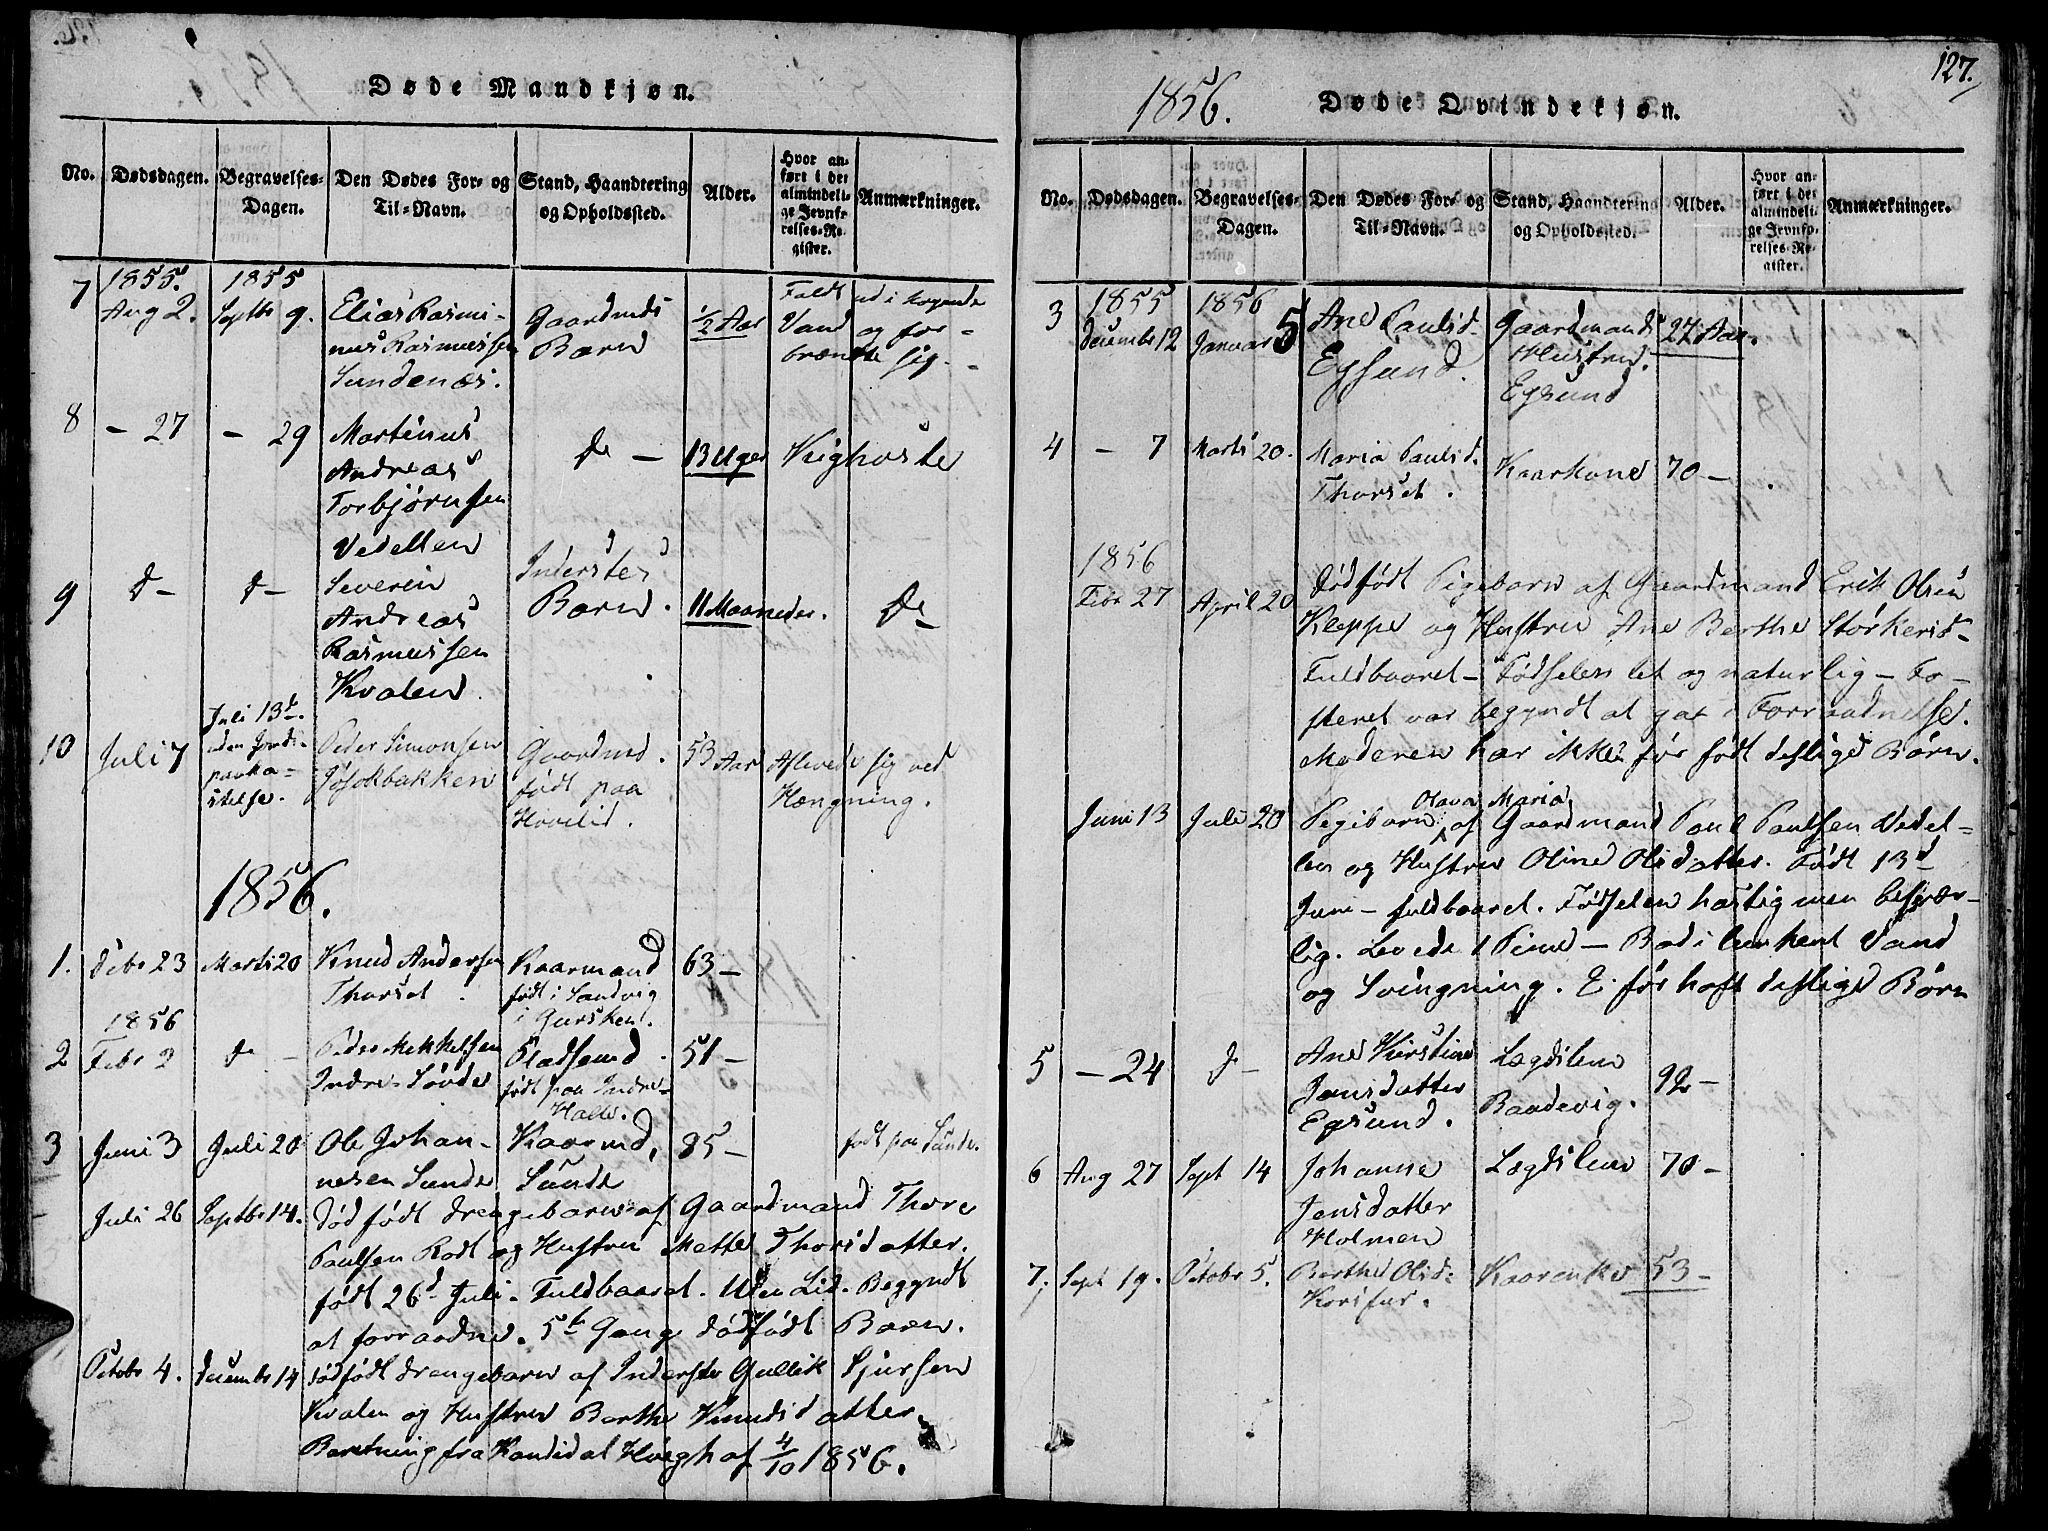 Døde Mandkjøn.
No. Dødsdagen. Begravelses-Dagen. Den Dødes For- og Til-Navn. Stand, Haandtering og Opholdssted. Alder. Hvor anført i det almindelige Jevnførelses-Register. Anmærkninger.
7 1855. Aug 2. 1855 Septb 9. Elias Rasmi-
nus Rasmussen
Sundenæs.
Gaardmds
Barn
1/2 Aar
Faldt ud i kogende
Vand og for-
brændte sig.
8 - 27 - 29 Martinus
Andreas
Torbjørnsen
Vedelden
do - 13 Uger Kighoste
9 do - do - Severin
Andreas
Rasmussen
Kvalen.
Inderstes
Barn.
11 Maaneder. do
10 Juli 7 Juli 13de
uden Jords-
paaka-
stelse.
Peder Simonsen
Jøsokbakken
Gaardmd.
født paa
Hovelid.
53 Aar Aflivede sig ved
Hængning.
1856.
1. Febr 23 Marts 20 Knud Andersen
Thorset.
Kaarmand
født i Sandvig
i Gursken.
63 -
1856
2 Febr 2 do - Peder Mekkelsen
Indre-Søvde
Pladsemd.
født paa Indre-
Halle.
51 -
3 Juni 3 Juli 20 Ole Johan-
nesen Sunde
Kaarmd,
Sunde
85 - født paa Sunde.
Juli 26 Septbr 14. Dødfødt Drengebarn af Gaardmand Thore
Paulsen Rødt og Hustru Mette Thorsdatter.
født 26d Juli - Fuldbaaret. Uden Lid. Begyndt
at forraadne. 5te Gang dødfødt Barn.
Octobr 4. Decembr 14 dødfødt Drengebarn af Inderste Gullik Sjursen
Kvalen og Hustru Berthe Knudsdatter.
Beretning fra Kandidat Høegh af 4/10 1856.
127.
1856. Døde Qvindekjøn.
No. Dødsdagen. Begravelses-Dagen. Den Dødes For- og Til-Navn. Stand, Haandtering og Opholdssted. Alder. Hvor anført i det almindelige Jevnførelses-Register. Anmærkninger.
3 1855 Decembr 12 1856 Januar 5 Ane Paulsd.
Egsund.
Gaardmands
Hustru.
Egsund
27 Aar.
4 - 7 Marts 20. Maria Paulsd.
Thorset.
Kaarkone 70 -
1856
Febr 27 April 20 Dødfødt Pigebarn af Gaardmand Erik Olsen
Kleppe og Hustru Ane Berthe Størkersd-
Fuldbaaret - Fødselen let og naturlig - Fo-
steret var begyndt at gaa i Forraadnelse.
Moderen har ikke før født deslige Børn.
Juni 13 Juli 20 Pigebarn Olava Maria af Gaardmand Paul Paulsen Vedel-
den og Hustru Oline Olsdatter. Født 13d
Juni - fuldbaaret. Fødselen hastig men besvær-
lig. Levede 1 Time - Bad i lunkent Vand
og Svingning. Ei før havt deslige Børn
5 - 24 do - Ane Kirstine
Jonsdatter
Egsund.
Lægdslem
Baadevig.
92 -
6 Aug 27 Sept 14 Johanne
Jensdatter
Holmen
Lægdslem 70 -
7. Sept 19. Octobr 5. Berthe Olsd.
Korsfur.
Kaarenke 53 -